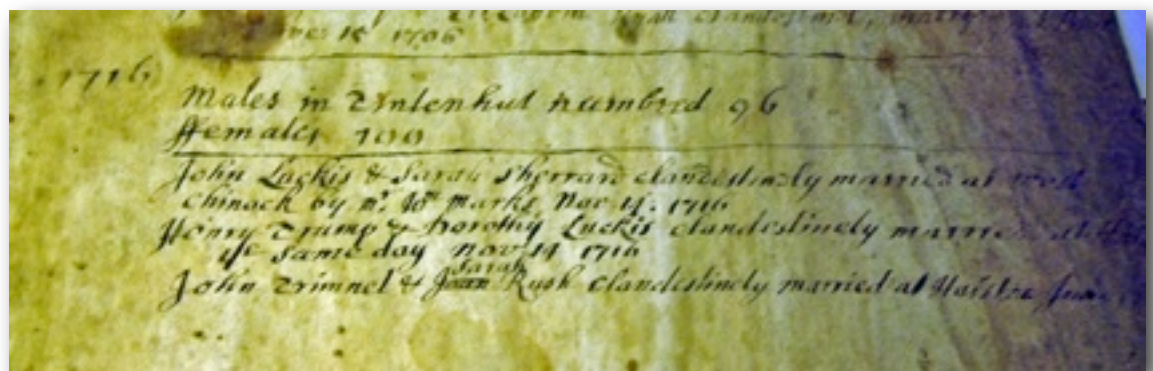 clandestine
1706
1716
Males in Tintenhul numbred 96
ffemales 100
John Luckis & Sarah Sherrard clandestinely married at West
Chinock by mr. Wm Marks Nov. 14. 1716
Henry Trump & Dorothy Luckis clandestinely married
ye same day Nov 14 1716
Sarah
John Trimnel & Joan Rush clandestinely married at